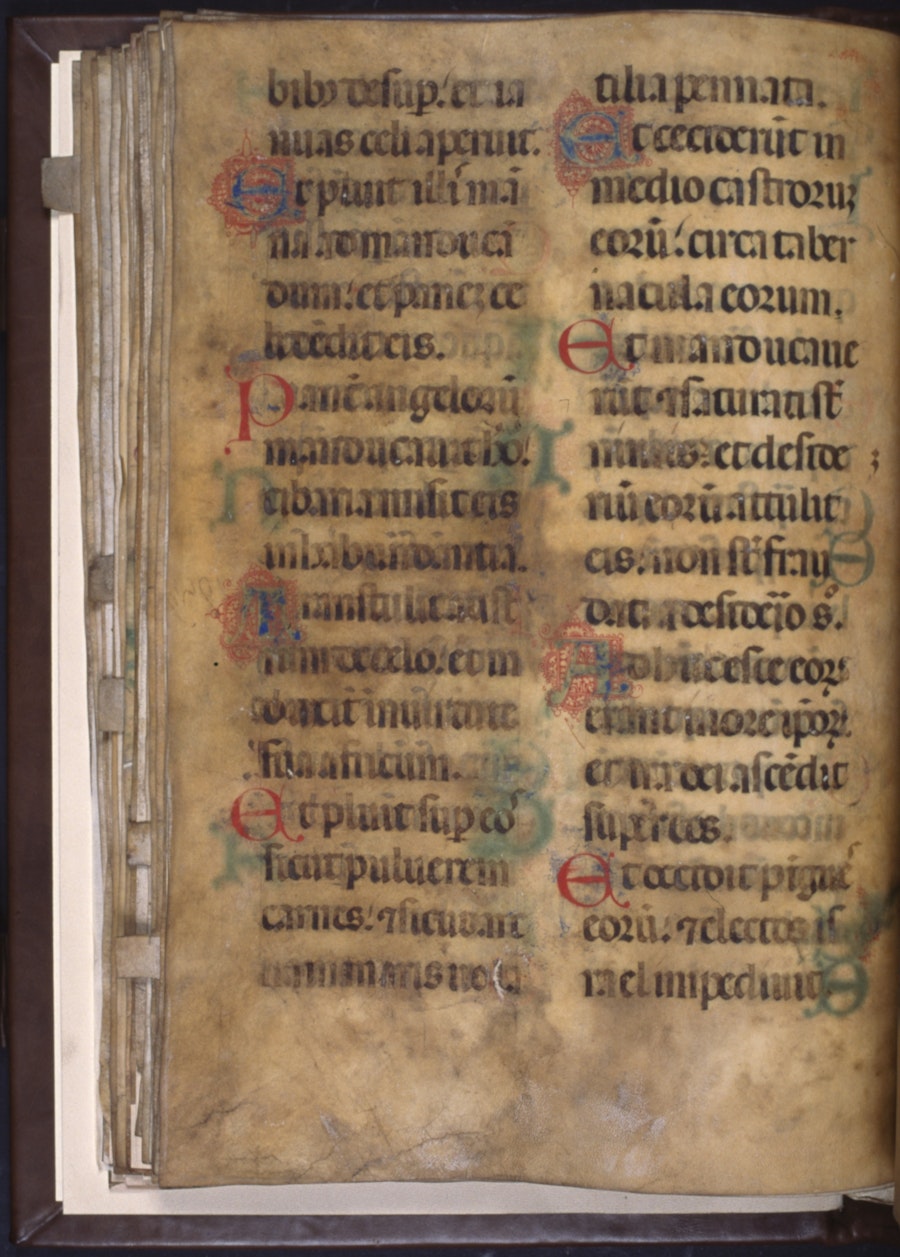 bib⁹ desup̱: et ia
nuas celi aperuit.
Et pluit illis mā
na ad manducā
dum: et panē ce
li dedit eis.
Panē angeloꝝ
manducauit hō:
cibaria misit eis
in habūdantia.
Transtulit austꝝ
de celo: et in
duxit in uirtute
sua africum.
Et pluit sup eos
sicut puluerem
carnes: ⁊ sicut are
nam maris uola
tilia pennata.
Et ceciderūt in
medio castroruꝫ
eorū: circa taber
nacula eorum.
Et manducaue
rūt ⁊ saturati st̄
nimis: et deside
riū eorū attulit
eis: non st̄ frau
dati a desiderio s.
Adhuc esce eoꝝ
erant in ore ipoꝝ:
et ira dei ascēdit
super eos.
Et occidit pigue
eorū: ⁊ electos is
rael impediuit.